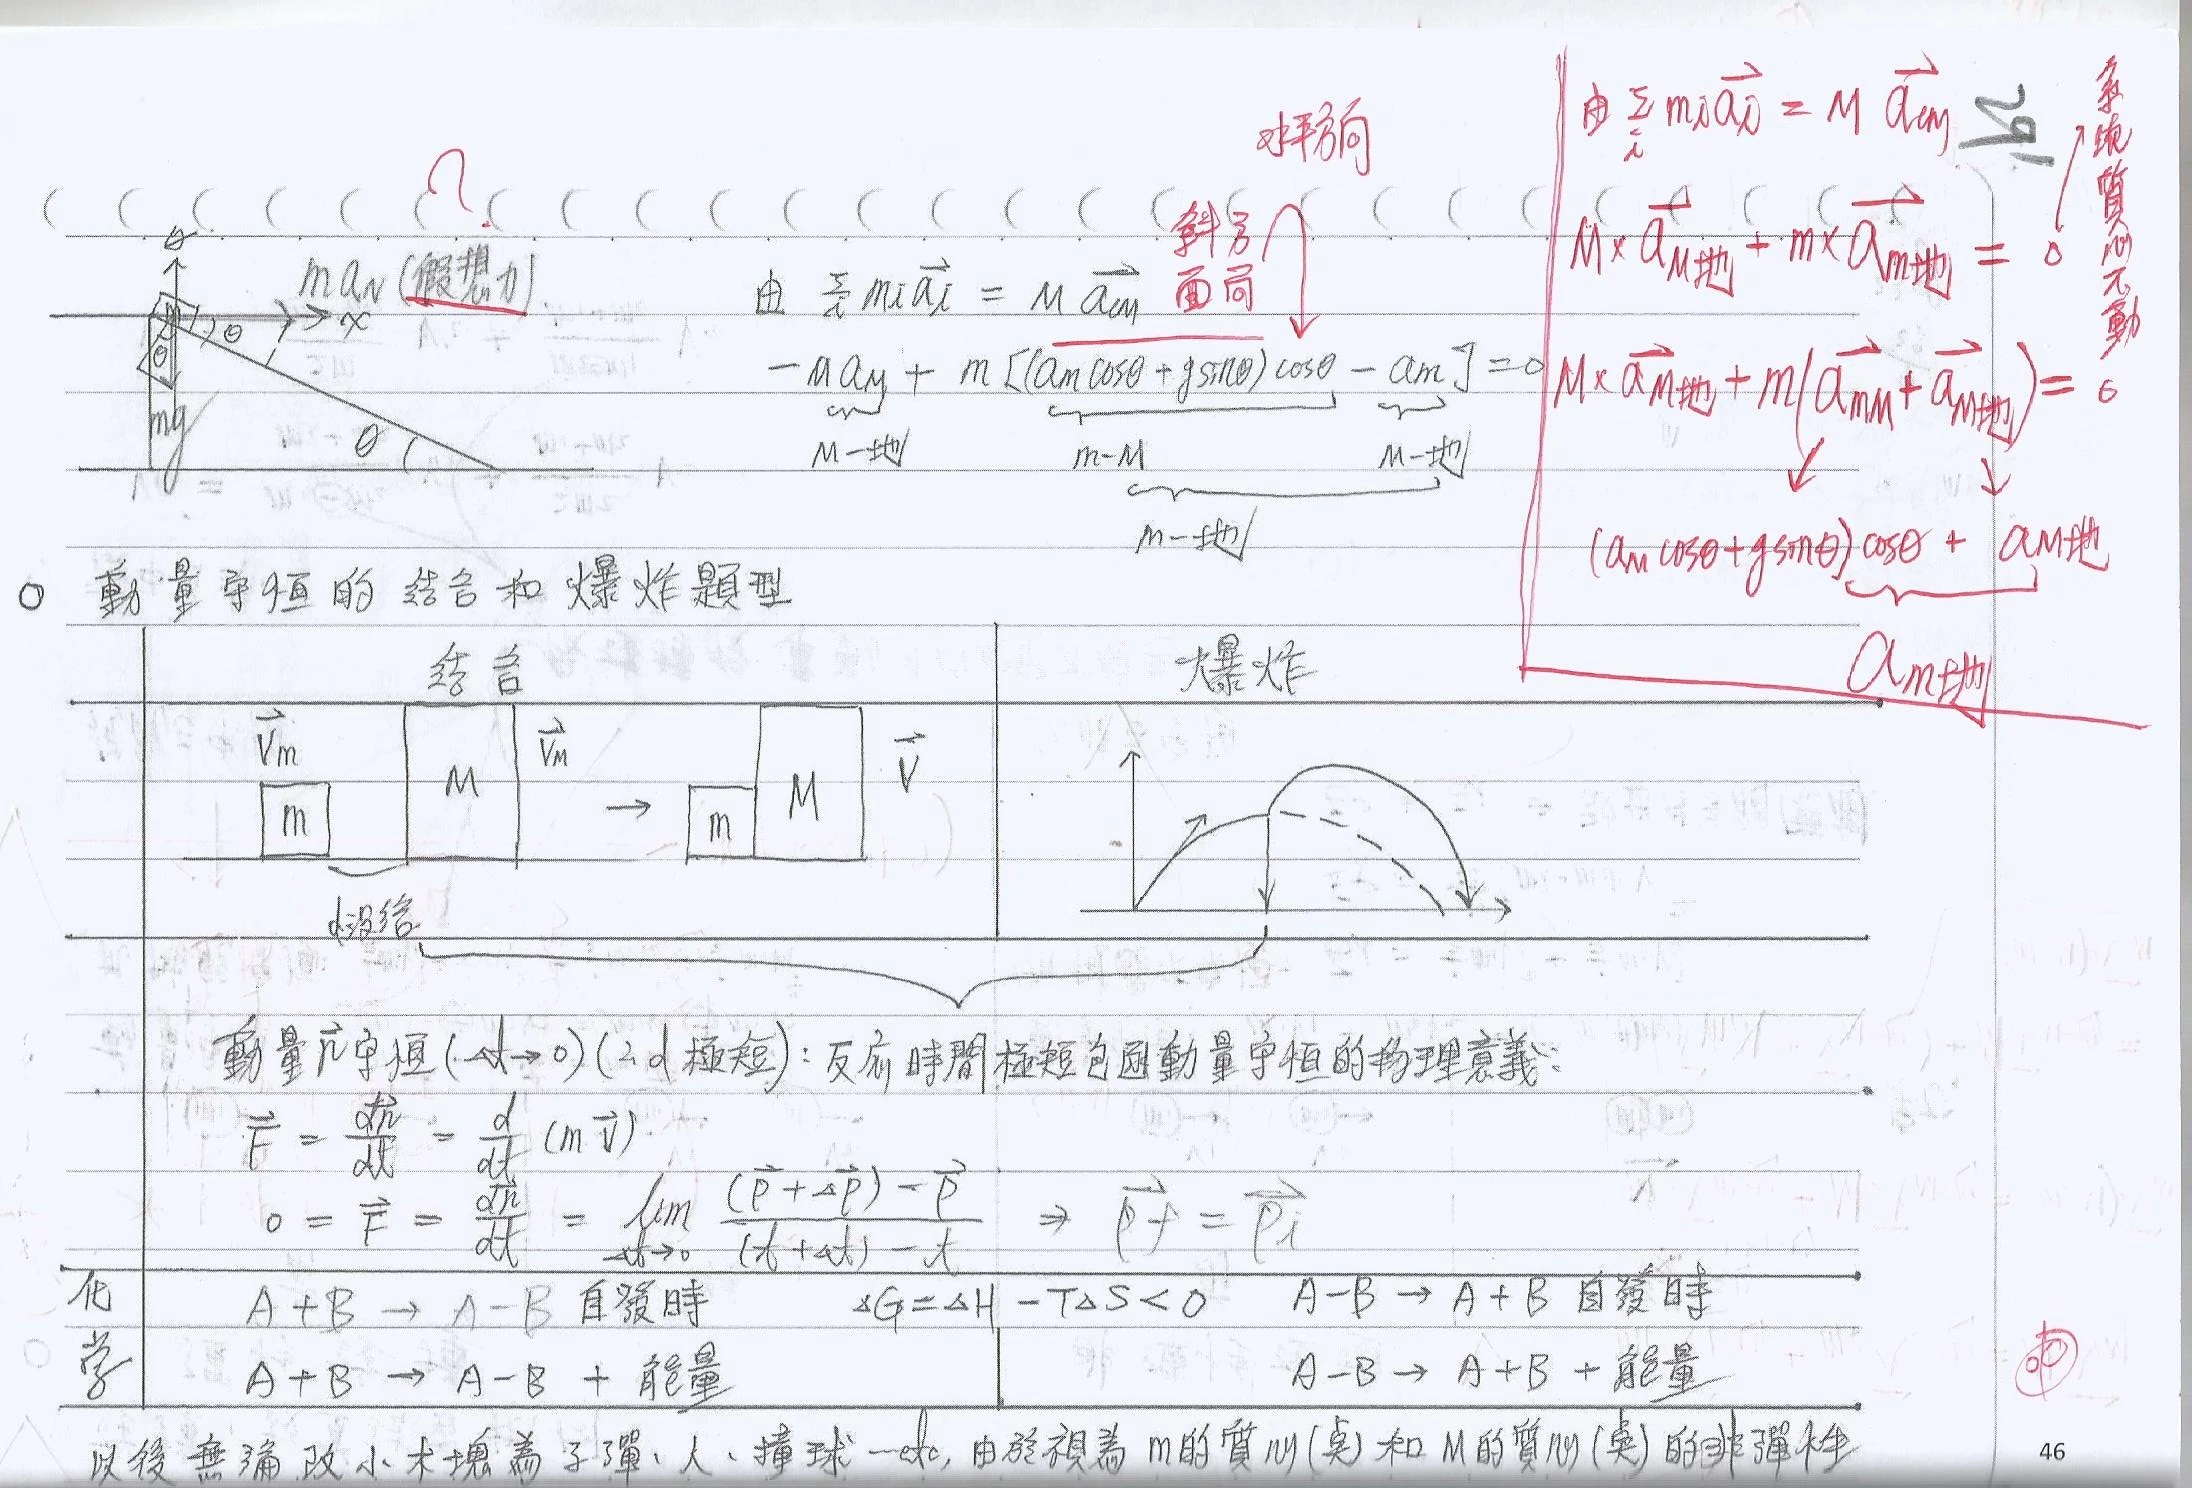 水平方向
斜方
面向
?
y
ma_N (假想力)
x
θ
θ
mg
θ
由 Σ_i m_i a_i⃗ = M a_CM⃗
-M a_M + m [(a_M cosθ + g sinθ) cosθ - a_M] = 0
M-地 m-M M-地
m-地
由 Σ_i m_i a_i⃗ = M a_CM⃗
系統質心不動
M × a_M地⃗ + m × a_m地⃗ = 0
M × a_M地⃗ + m (a_mM⃗ + a_M地⃗) = 0
(a_M cosθ + g sinθ) cosθ + a_M地
a_m地
○ 動量守恒的結合和爆炸題型
結合 爆炸
V_m⃗ m M V_M⃗ → m M V⃗
動量p⃗守恒(Δt→0)(2.d極短):反應時間極短包函動量守恒的物理意義:
F⃗ = dp⃗/dt = d/dt (m V⃗)
0 = F⃗ = dp⃗/dt = lim_{Δt→0} ((p⃗ + Δp⃗) - p⃗)/((t + Δt) - t) ⇒ p_f⃗ = p_i⃗
化学
A + B → A-B 自發時 ΔG = ΔH - TΔS < 0 A-B → A + B 自發時
A + B → A-B + 能量 A-B → A + B + 能量
以後無論改小木塊為子彈、人、撞球…etc, 由於視為m的質心(点)和M的質心(点)的非彈性
46